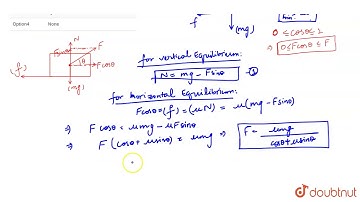 Option4 None
f (mg)
(N) F
(f) θ Fcosθ
(mg)
0 ≤ cosθ ≤ 1
0 ≤ Fcosθ ≤ F
for vertical Equilibrium:
N = mg - Fsinθ
for horizontal Equilibrium:
Fcosθ = (f) = (μN) = μ(mg - Fsinθ)
⇒ F cosθ = μmg - μFsinθ
⇒ F (cosθ + μsinθ) = μmg ⇒ F = μmg / cosθ + μsinθ
doubtnut